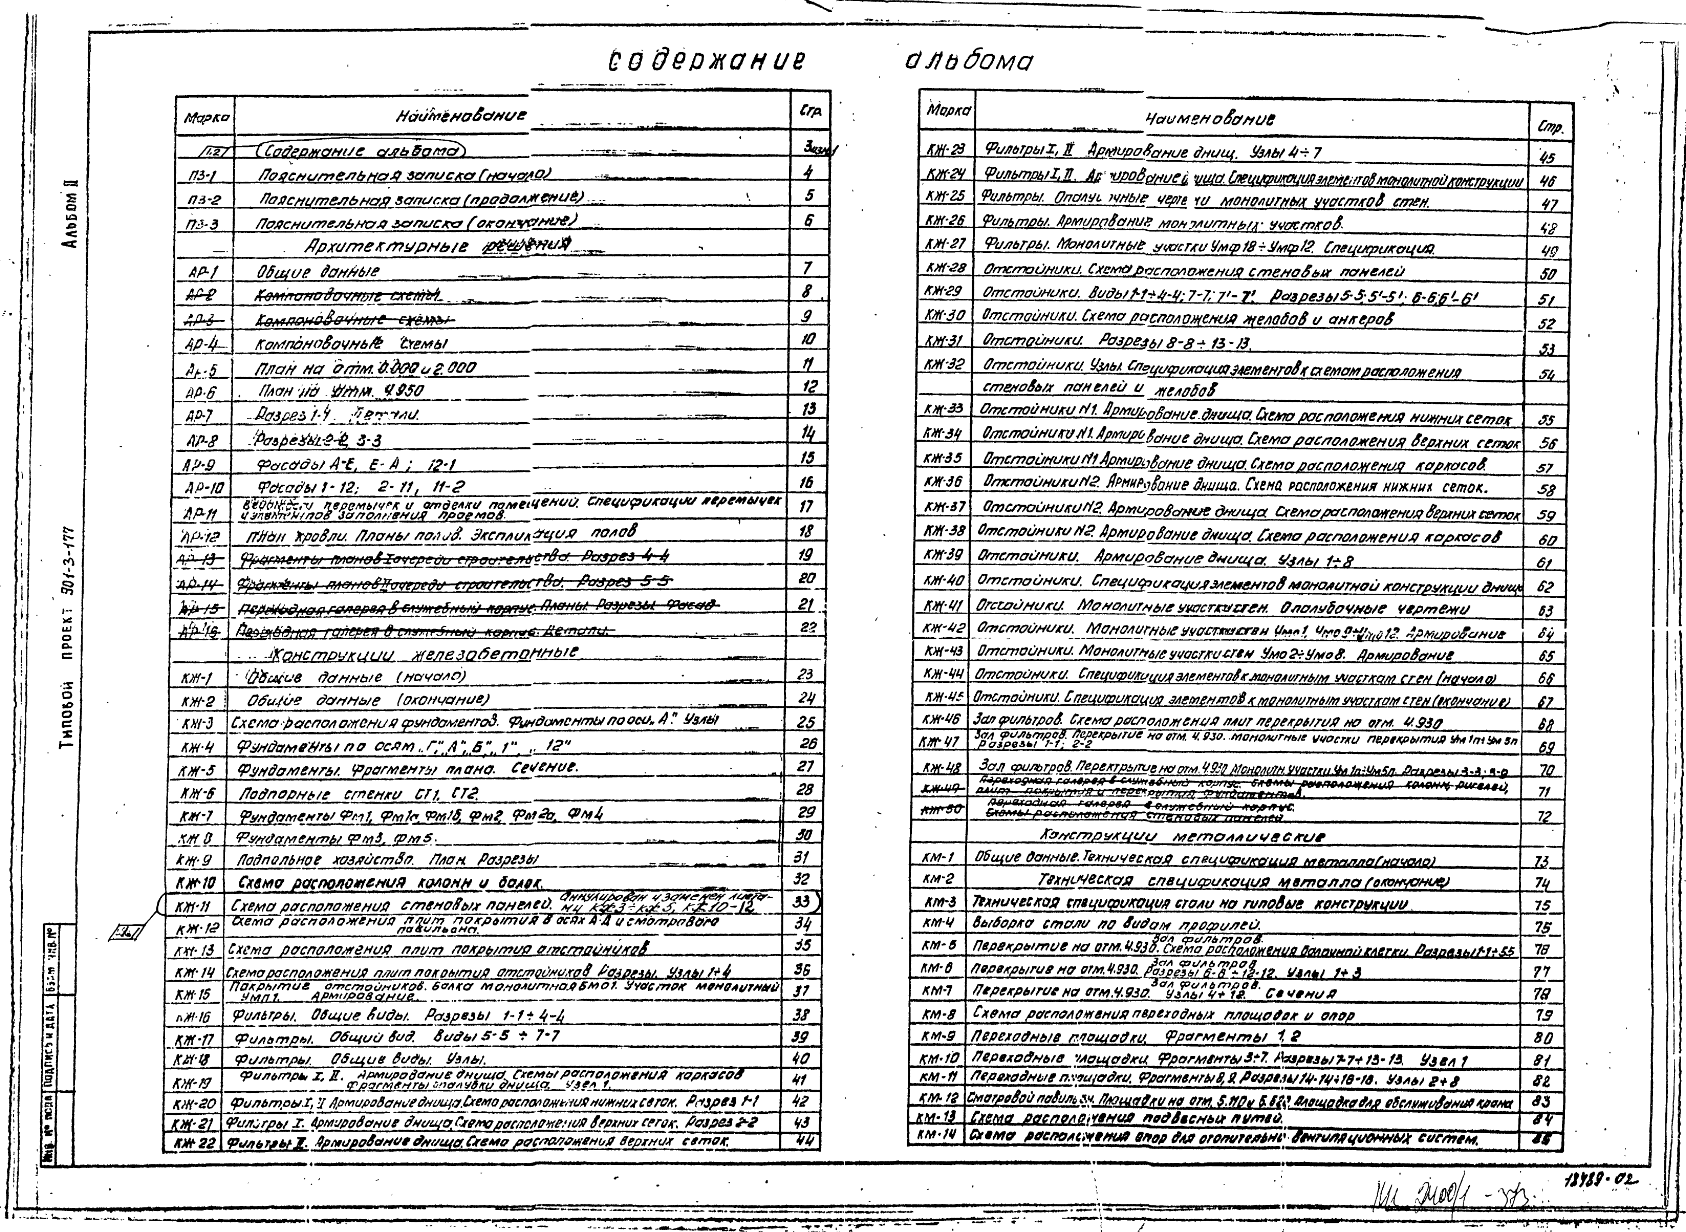 содержание альбома
Альбом II
Типовой проект 901-3-177
Марка Наименование Стр.
Содержание альбома 3
ПЗ-1 Пояснительная записка (начало) 4
ПЗ-2 Пояснительная записка (продолжение) 5
ПЗ-3 Пояснительная записка (окончание) 6
Архитектурные решения
АР-1 Общие данные 7
АР-2 Компоновочные схемы 8
АР-3 Компоновочные схемы 9
АР-4 Компоновочные схемы 10
АР-5 План на отм. 0.000 и 2.000 11
АР-6 План на отм. 4.950 12
АР-7 Разрез 1-1. Детали. 13
АР-8 Разрезы 2-2, 3-3 14
АР-9 Фасады А-Е, Е-А; 12-1 15
АР-10 Фасады 1-12; 2-11, 11-2 16
АР-11 Ведомости перемычек и отделки помещений. Спецификации перемычек
и элементов заполнения проемов. 17
АР-12 План кровли. Планы полов. Экспликация полов 18
АР-13 Фрагменты планов I очереди строительства. Разрез 4-4 19
АР-14 Фрагменты планов II очереди строительства. Разрез 5-5 20
АР-15 Переходная галерея в служебный корпус. Планы. Разрезы. Фасад 21
АР-16 Переходная галерея в служебный корпус. Детали. 22
Конструкции железобетонные
КЖ-1 Общие данные (начало) 23
КЖ-2 Общие данные (окончание) 24
КЖ-3 Схема расположения фундаментов. Фундаменты по оси „А". Узлы 25
КЖ-4 Фундаменты по осям „Г", „А", „Б", „1", „12" 26
КЖ-5 Фундаменты. Фрагменты плана. Сечение. 27
КЖ-6 Подпорные стенки СТ1, СТ2. 28
КЖ-7 Фундаменты Фм1, Фм1а, Фм1б, Фм2, Фм2а, Фм4 29
КЖ-8 Фундаменты Фм3, Фм5. 30
КЖ-9 Подпольное хозяйство. План. Разрезы 31
КЖ-10 Схема расположения колонн и балок. 32
КЖ-11 Схема расположения стеновых панелей. Аннулирован и заменен листа-
ми КЖ3÷КЖ5, КЖ10-12 33
КЖ-12 Схема расположения плит покрытия в осях А-Д и смотрового
павильона. 34
КЖ-13 Схема расположения плит покрытия отстойников 35
КЖ-14 Схема расположения плит покрытия отстойников. Разрезы. Узлы 1÷4 36
КЖ-15 Покрытие отстойников. Балка монолитная Бмо1. Участок монолитный
УМП1. Армирование. 37
КЖ-16 Фильтры. Общие виды. Разрезы 1-1÷4-4 38
КЖ-17 Фильтры. Общий вид. Виды 5-5 ÷ 7-7 39
КЖ-18 Фильтры. Общие виды. Узлы. 40
КЖ-19 Фильтры I, II. Армирование днища. Схемы расположения каркасов
Фрагменты опалубки днища. Узел 1. 41
КЖ-20 Фильтры I, II Армирование днища. Схема расположения нижних сеток. Разрез 1-1 42
КЖ-21 Фильтры I. Армирование днища. Схема расположения верхних сеток. Разрез 2-2 43
КЖ-22 Фильтры II. Армирование днища. Схема расположения верхних сеток. 44
Марка Наименование Стр.
КЖ-23 Фильтры I, II Армирование днищ. Узлы 4÷7 45
КЖ-24 Фильтры I, II. Армирование днища. Спецификация элементов монолитной конструкции 46
КЖ-25 Фильтры. Опалубочные чертежи монолитных участков стен. 47
КЖ-26 Фильтры. Армирование монолитных участков. 48
КЖ-27 Фильтры. Монолитные участки Умф18÷Умф12. Спецификация. 49
КЖ-28 Отстойники. Схема расположения стеновых панелей 50
КЖ-29 Отстойники. Виды 1-1÷4-4; 7-7; 7'-7'. Разрезы 5-5; 5'-5'; 6-6; 6'-6' 51
КЖ-30 Отстойники. Схема расположения желобов и анкеров 52
КЖ-31 Отстойники. Разрезы 8-8÷13-13. 53
КЖ-32 Отстойники. Узлы. Спецификация элементов к схемам расположения 54
стеновых панелей и желобов
КЖ-33 Отстойники N1. Армирование днища. Схема расположения нижних сеток 55
КЖ-34 Отстойники N1. Армирование днища. Схема расположения верхних сеток 56
КЖ-35 Отстойники N1 Армирование днища. Схема расположения каркасов. 57
КЖ-36 Отстойники N2. Армирование днища. Схема расположения нижних сеток. 58
КЖ-37 Отстойники N2. Армирование днища. Схема расположения верхних сеток 59
КЖ-38 Отстойники N2. Армирование днища. Схема расположения каркасов 60
КЖ-39 Отстойники. Армирование днища. Узлы 1÷8 61
КЖ-40 Отстойники. Спецификация элементов монолитной конструкции днищ 62
КЖ-41 Отстойники. Монолитные участки стен. Опалубочные чертежи 63
КЖ-42 Отстойники. Монолитные участки стен Умо1, Умо9÷Умо12. Армирование 64
КЖ-43 Отстойники. Монолитные участки стен Умо2÷Умо8. Армирование 65
КЖ-44 Отстойники. Спецификация элементов к монолитным участкам стен (начало) 66
КЖ-45 Отстойники. Спецификация элементов к монолитным участкам стен (окончание) 67
КЖ-46 Зал фильтров. Схема расположения плит перекрытия на отм. 4.930 68
КЖ-47 Зал фильтров. Перекрытие на отм. 4.930. Монолитные участки перекрытия Ум1п÷Ум5п
Разрезы 1-1; 2-2 69
КЖ-48 Зал фильтров. Перекрытие на отм. 4.930 Монолитн. участки Ум1п÷Ум5п. Разрезы 3-3; 70
КЖ-49 Переходная галерея в служебный корпус. Схемы расположения колонн, ригелей,
плит покрытия и перекрытия, фундаментов. 71
КЖ-50 Переходная галерея в служебный корпус.
Схемы расположения стеновых панелей 72
Конструкции металлические
КМ-1 Общие данные. Техническая спецификация металла (начало) 73
КМ-2 Техническая спецификация металла (окончание) 74
КМ-3 Техническая спецификация стали на типовые конструкции 75
КМ-4 Выборка стали по видам профилей. 75
КМ-5 Зал фильтров.
Перекрытие на отм. 4.930. Схема расположения балочной клетки. Разрезы 1-1÷5-5 76
КМ-6 Зал фильтров
Перекрытие на отм. 4.930. Разрезы 6-6÷12-12. Узлы 1÷3 77
КМ-7 Зал фильтров.
Перекрытие на отм. 4.930. Узлы 4÷12. Сечения 78
КМ-8 Схема расположения переходных площадок и опор 79
КМ-9 Переходные площадки. Фрагменты 1, 2 80
КМ-10 Переходные площадки. Фрагменты 3÷7. Разрезы 7-7÷13-13. Узел 1 81
КМ-11 Переходные площадки. Фрагменты 8, 9. Разрезы 14-14÷18-18. Узлы 2÷8 82
КМ-12 Смотровой павильон. Площадки на отм. 5.110 и Площадка для обслуживания крана 83
КМ-13 Схема расположения подвесных путей. 84
КМ-14 Схема расположения опор для отопительно вентиляционных систем. 85
Инв. № подл. Подпись и дата Взам. инв. №
18489-02